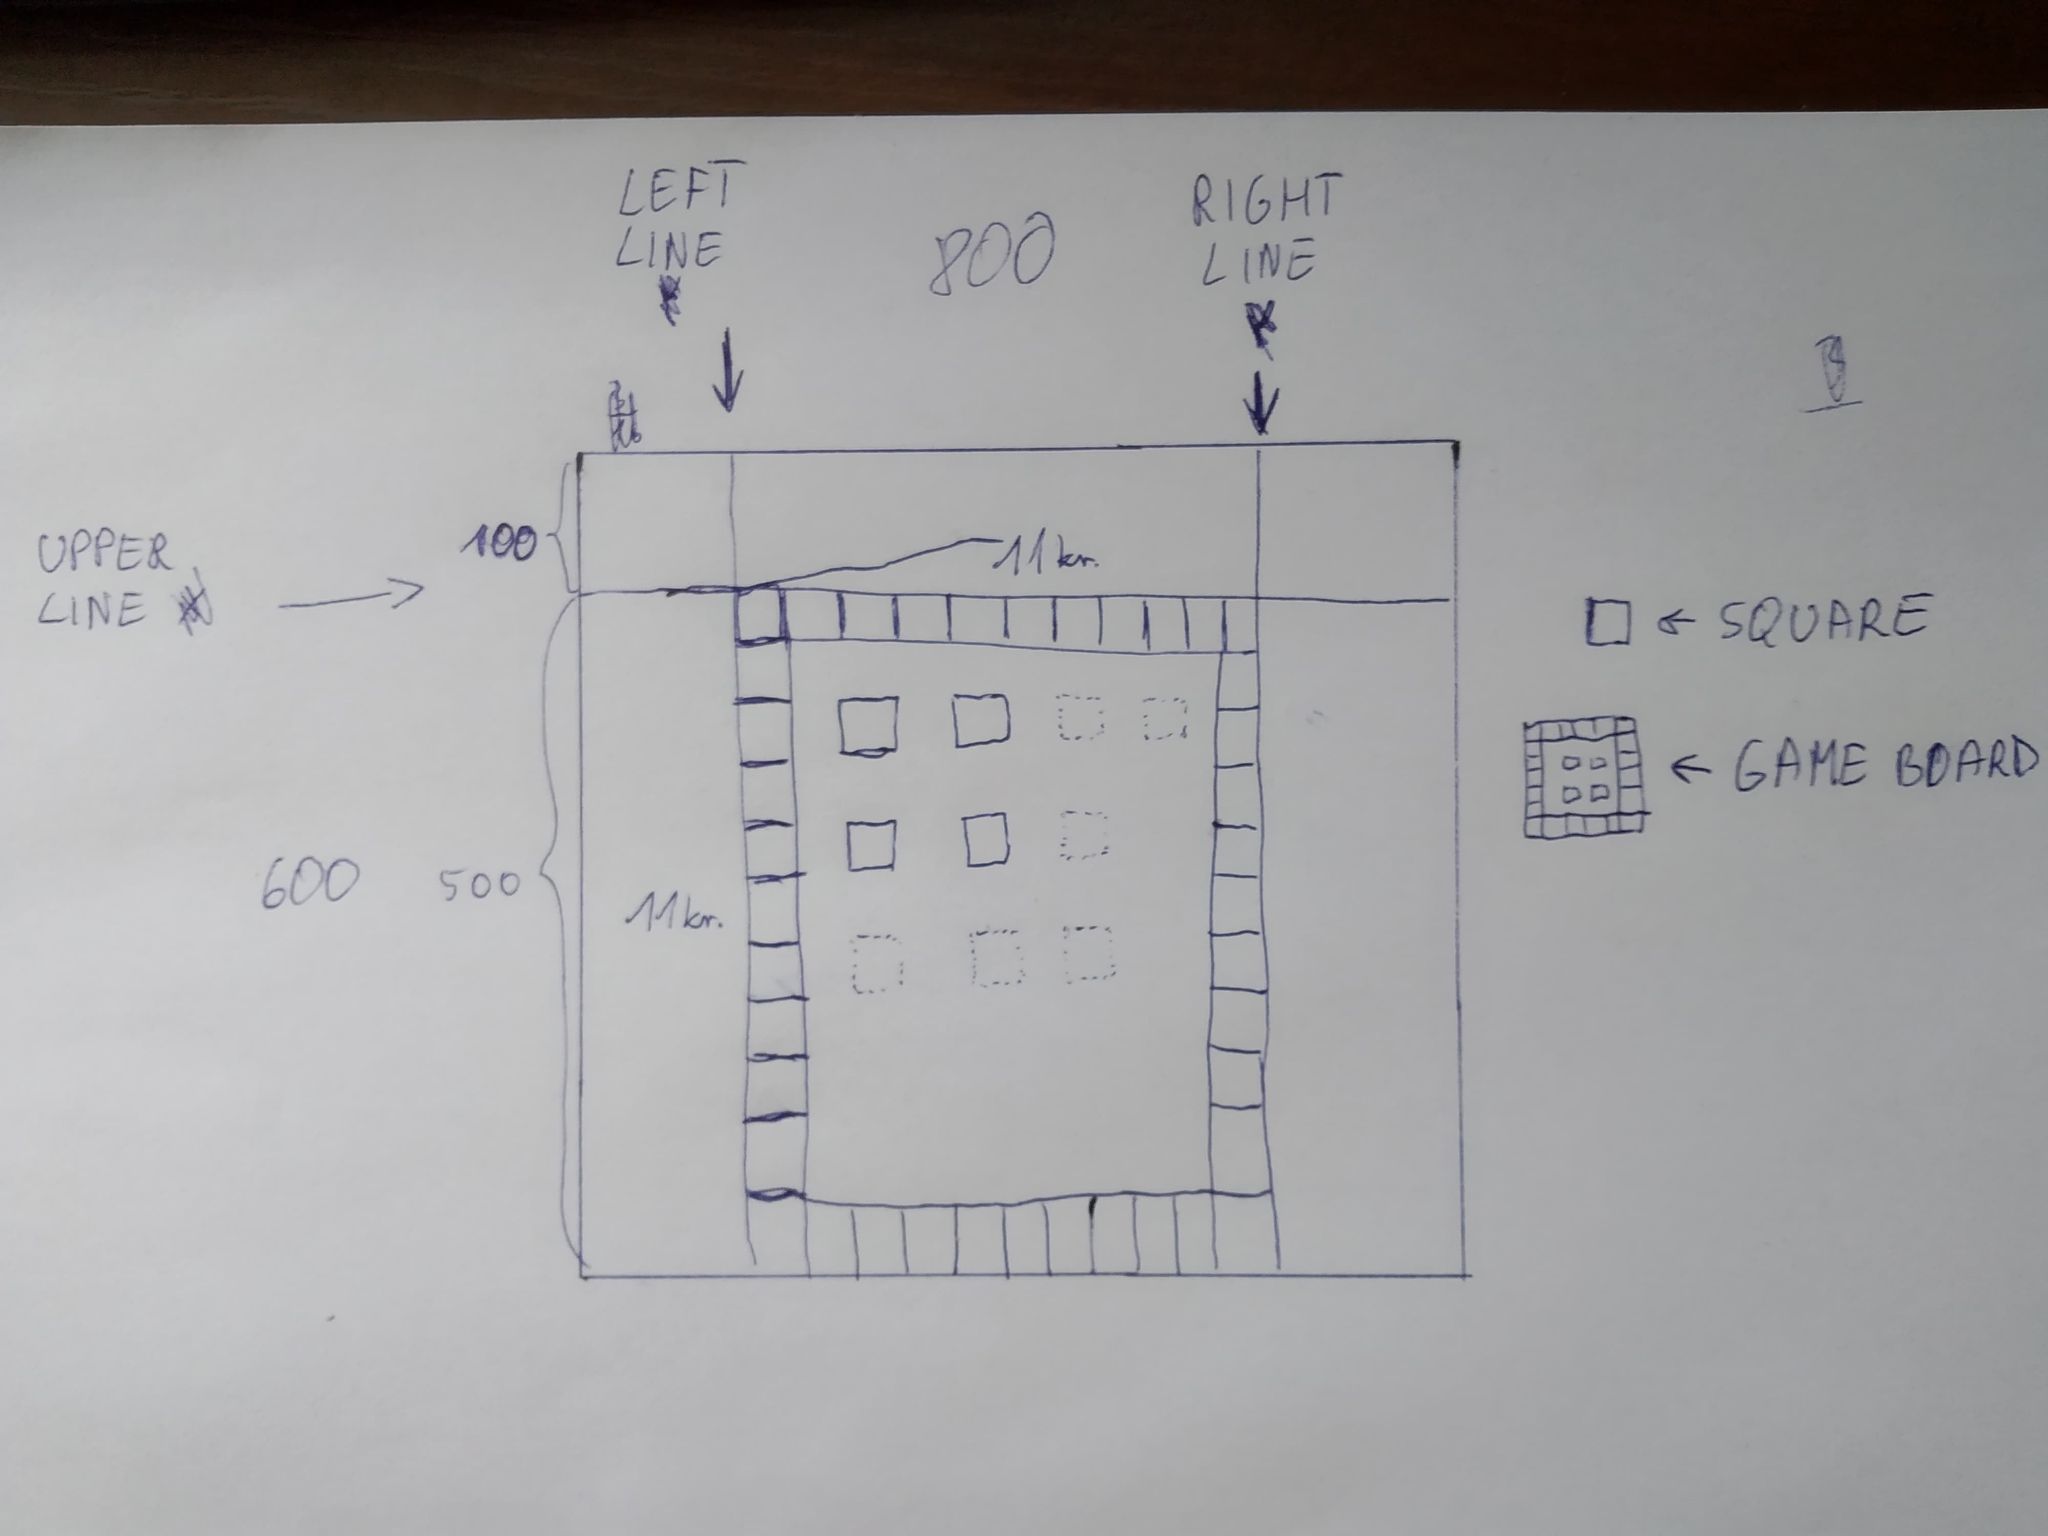 LEFT
LINE
800
RIGHT
LINE
UPPER
LINE
100
11kr.
SQUARE
GAME BOARD
600
500
11kr.